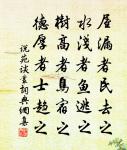 屋漏者民去之
水淺者魚逃之
樹高者鳥宿之
德厚者士趨之
說苑談叢詞典網集